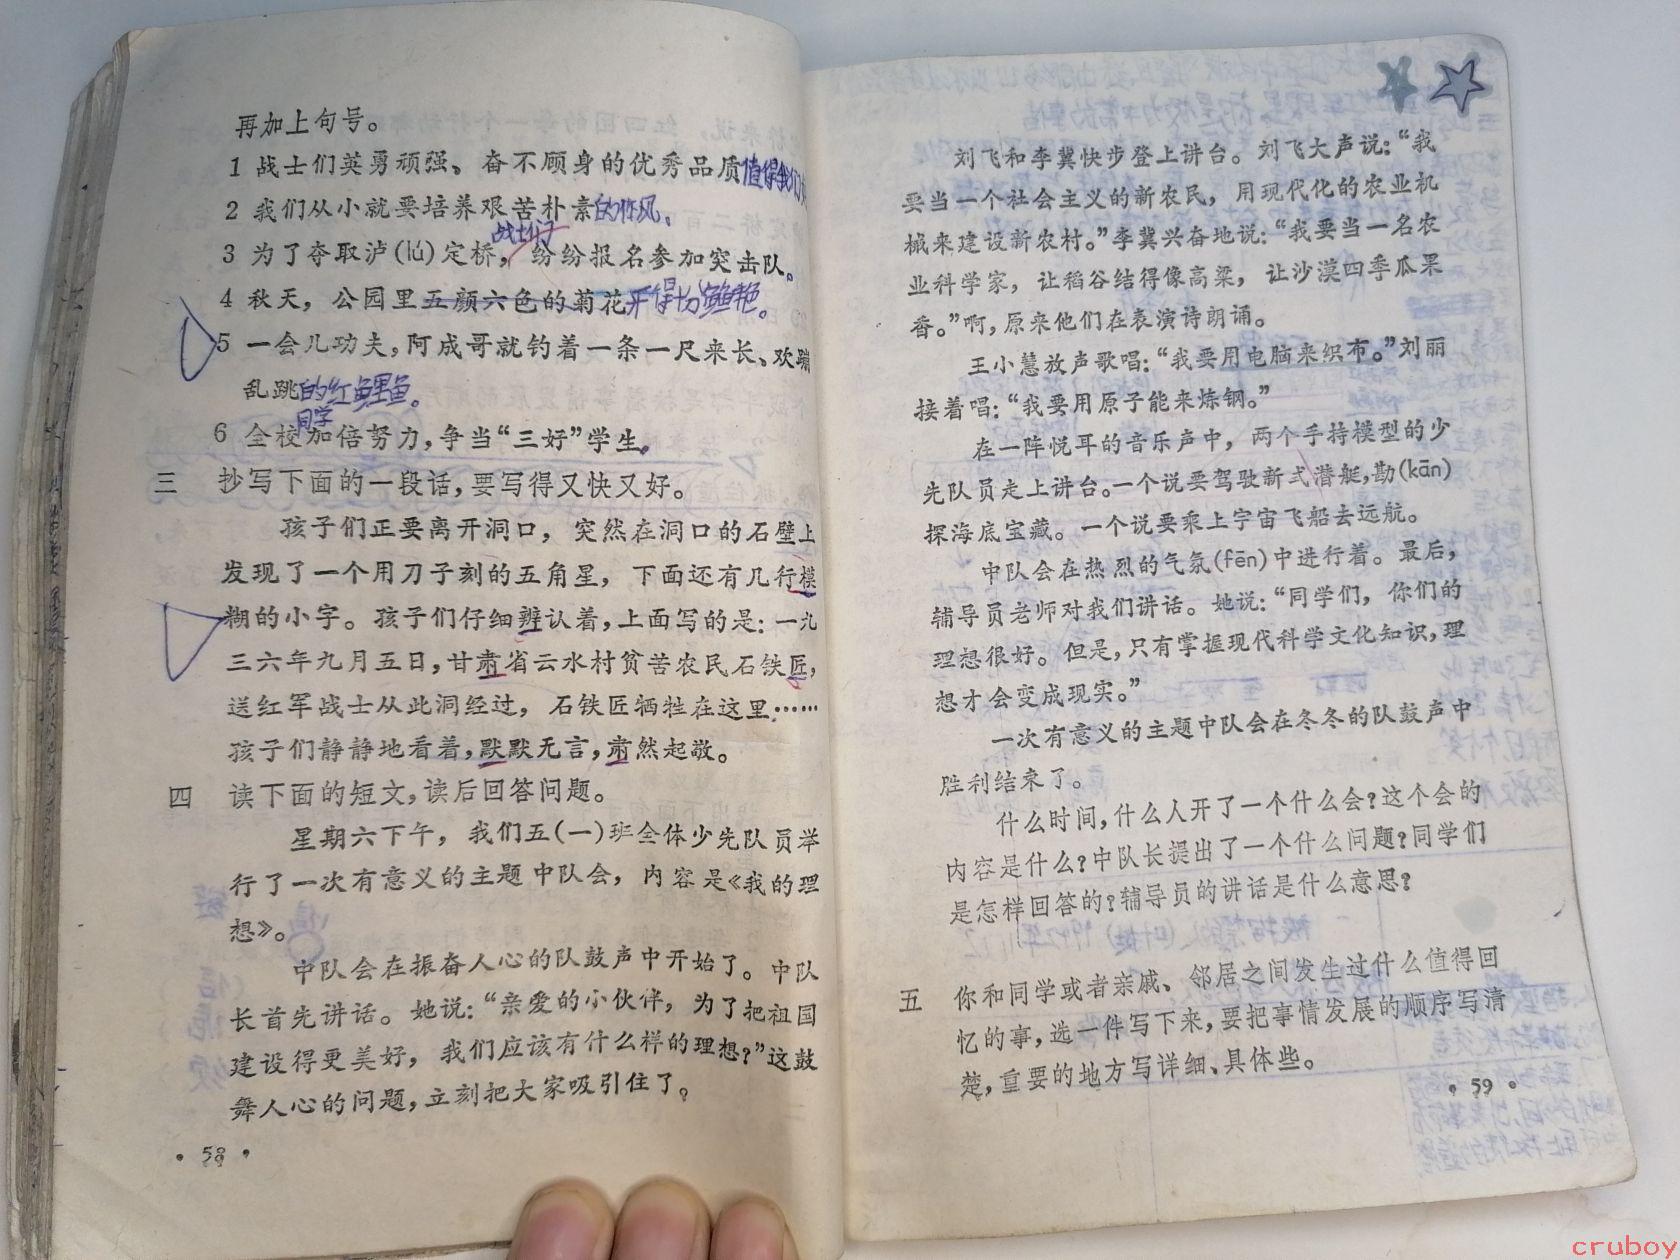 再加上句号。
1 战士们英勇顽强、奋不顾身的优秀品质值得我们
2 我们从小就要培养艰苦朴素的作风。
战士们
3 为了夺取泸(lú)定桥，纷纷报名参加突击队。
4 秋天，公园里五颜六色的菊花开得十分鲜艳。
5 一会儿功夫，阿成哥就钓着一条一尺来长、欢蹦
乱跳的红鲤鱼。
同学
6 全校加倍努力，争当“三好”学生。
三 抄写下面的一段话，要写得又快又好。
孩子们正要离开洞口，突然在洞口的石壁上
发现了一个用刀子刻的五角星，下面还有几行模
糊的小字。孩子们仔细辨认着，上面写的是：一九
三六年九月五日，甘肃省云水村贫苦农民石铁匠，
送红军战士从此洞经过，石铁匠牺牲在这里……
孩子们静静地看着，默默无言，肃然起敬。
四 读下面的短文，读后回答问题。
星期六下午，我们五(一)班全体少先队员举
行了一次有意义的主题中队会，内容是《我的理
想》。
中队会在振奋人心的队鼓声中开始了。中队
长首先讲话。她说：“亲爱的小伙伴，为了把祖国
建设得更美好，我们应该有什么样的理想？”这鼓
舞人心的问题，立刻把大家吸引住了。
·58·
刘飞和李冀快步登上讲台。刘飞大声说：“我
要当一个社会主义的新农民，用现代化的农业机
械来建设新农村。”李冀兴奋地说：“我要当一名农
业科学家，让稻谷结得像高梁，让沙漠四季瓜果
香。”啊，原来他们在表演诗朗诵。
王小慧放声歌唱：“我要用电脑来织布。”刘丽
接着唱：“我要用原子能来炼钢。”
在一阵悦耳的音乐声中，两个手持模型的少
先队员走上讲台。一个说要驾驶新式潜艇，勘(kān)
探海底宝藏。一个说要乘上宇宙飞船去远航。
中队会在热烈的气氛(fēn)中进行着。最后，
辅导员老师对我们讲话。她说：“同学们，你们的
理想很好。但是，只有掌握现代科学文化知识，理
想才会变成现实。”
一次有意义的主题中队会在冬冬的队鼓声中
胜利结束了。
什么时间，什么人开了一个什么会？这个会的
内容是什么？中队长提出了一个什么问题？同学们
是怎样回答的？辅导员的讲话是什么意思？
五 你和同学或者亲戚、邻居之间发生过什么值得回
忆的事，选一件写下来，要把事情发展的顺序写清
楚，重要的地方写详细、具体些。
·59·
cruboy